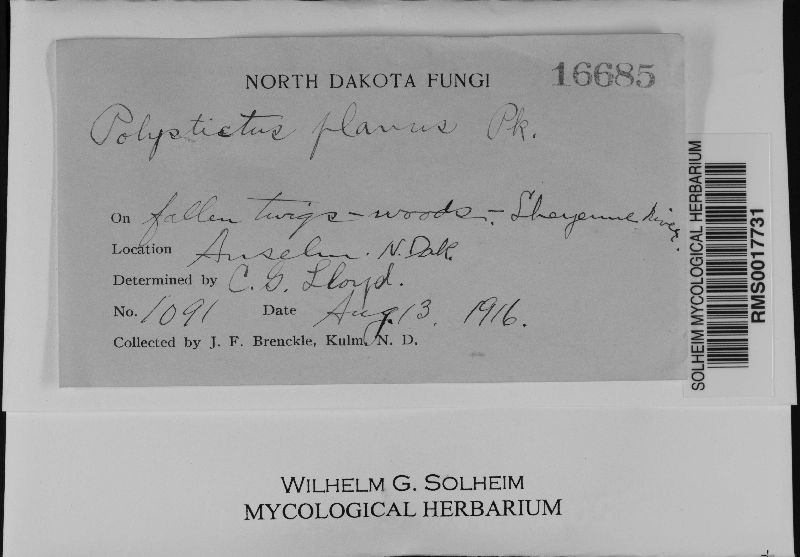 NORTH DAKOTA FUNGI 16685
Polystictus planus Pk.
On fallen twigs - woods - Sheyenne River.
Location Anselm. N. Dak.
Determined by C. G. Lloyd.
No. 1091 Date Aug. 13. 1916.
Collected by J. F. Brenckle, Kulm, N. D.
SOLHEIM MYCOLOGICAL HERBARIUM
RMS0017731
WILHELM G. SOLHEIM
MYCOLOGICAL HERBARIUM